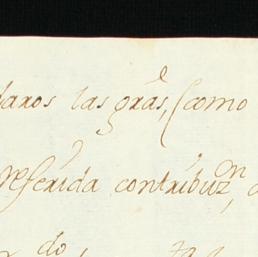 daros las gra^s, (como
referida contribuz^on,